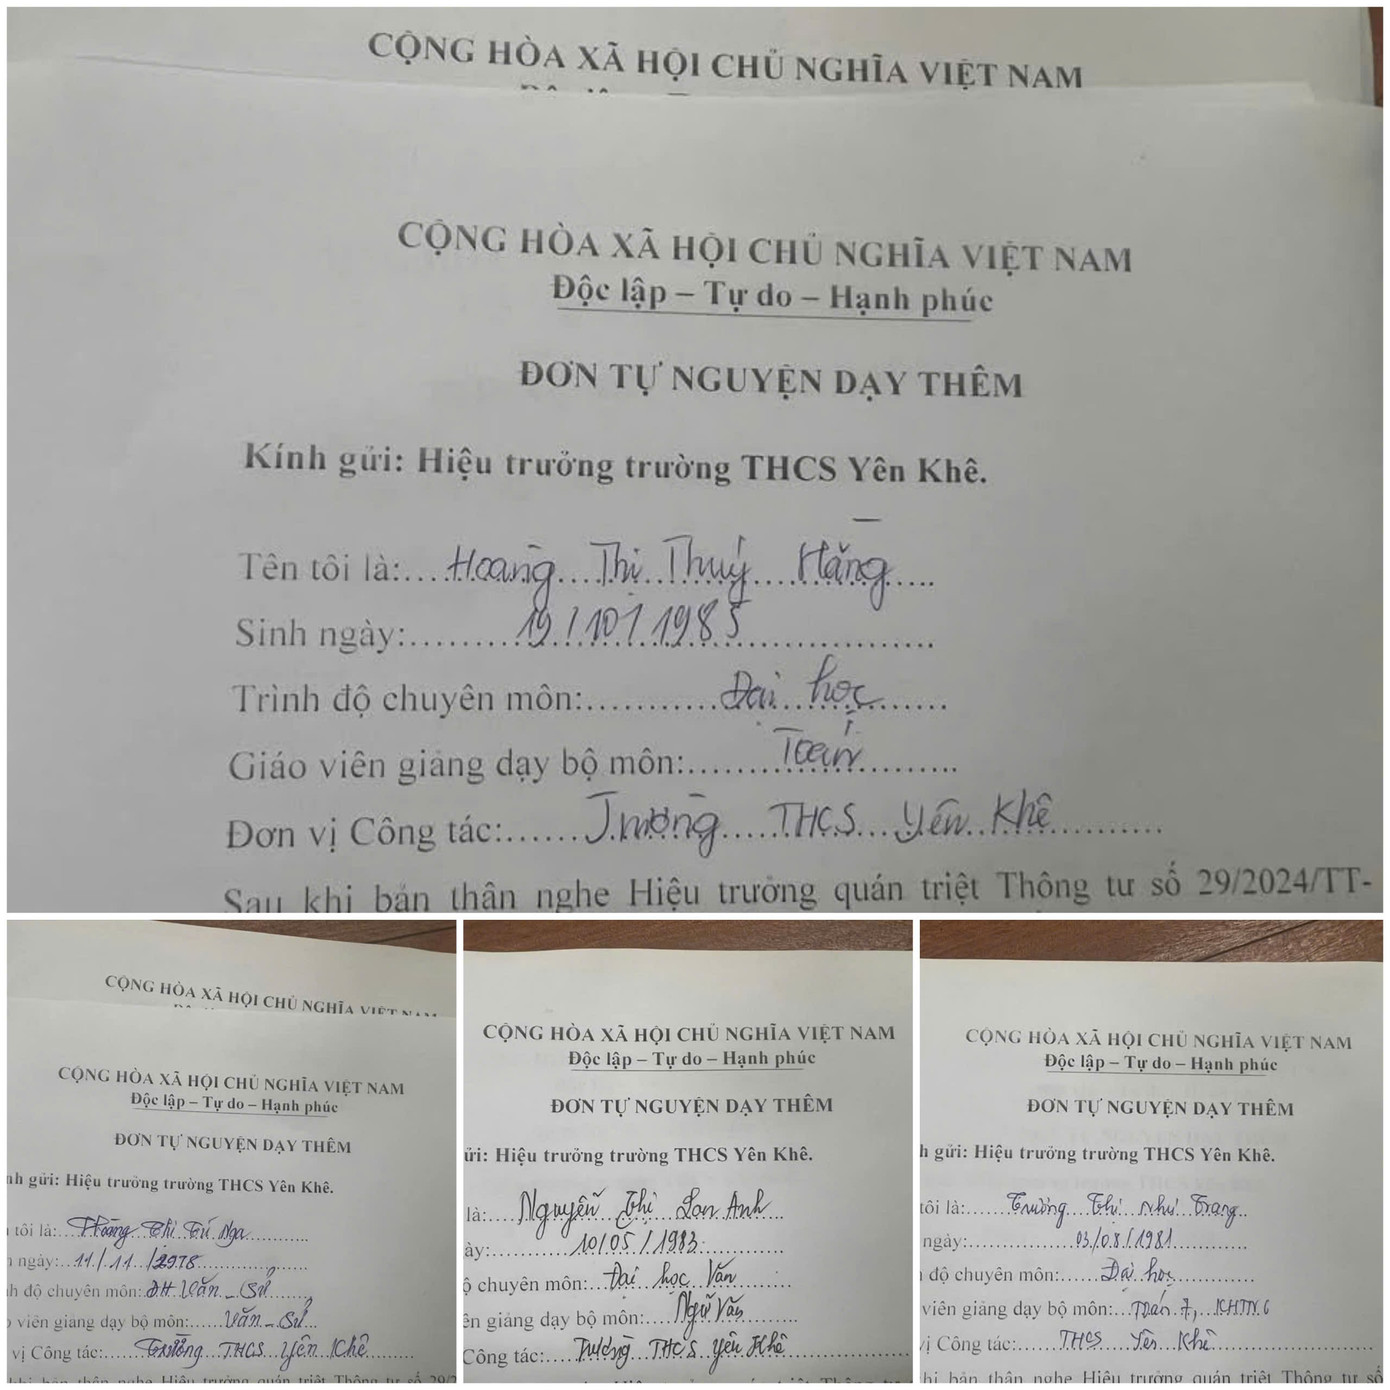 CỘNG HÒA XÃ HỘI CHỦ NGHĨA VIỆT NAM
CỘNG HÒA XÃ HỘI CHỦ NGHĨA VIỆT NAM
Độc lập – Tự do – Hạnh phúc
ĐƠN TỰ NGUYỆN DẠY THÊM
Kính gửi: Hiệu trưởng trường THCS Yên Khê.
Tên tôi là: Hoàng Thị Thuý Hằng
Sinh ngày: 19/10/1985
Trình độ chuyên môn: Đại học
Giáo viên giảng dạy bộ môn: Toán
Đơn vị Công tác: Trường THCS Yên Khê
Sau khi bản thân nghe Hiệu trưởng quán triệt Thông tư số 29/2024/TT-
CỘNG HÒA XÃ HỘI CHỦ NGHĨA VIỆT NAM
CỘNG HÒA XÃ HỘI CHỦ NGHĨA VIỆT NAM
Độc lập – Tự do – Hạnh phúc
ĐƠN TỰ NGUYỆN DẠY THÊM
nh gửi: Hiệu trưởng trường THCS Yên Khê.
tôi là: Hoàng Thị Tú Nga
ngày: 11/11/1978
h độ chuyên môn: ĐH Văn - Sử
viên giảng dạy bộ môn: Văn - Sử
vị Công tác: Trường THCS Yên Khê
khi bản thân nghe Hiệu trưởng quán triệt Thông tư số 29/2
CỘNG HÒA XÃ HỘI CHỦ NGHĨA VIỆT NAM
Độc lập – Tự do – Hạnh phúc
ĐƠN TỰ NGUYỆN DẠY THÊM
ửi: Hiệu trưởng trường THCS Yên Khê.
là: Nguyễn Thị Lan Anh
ày: 10/05/1983
ộ chuyên môn: Đại học Văn
ên giảng dạy bộ môn: Ngữ Văn
Công tác: Trường THCS Yên Khê
CỘNG HÒA XÃ HỘI CHỦ NGHĨA VIỆT NAM
Độc lập – Tự do – Hạnh phúc
ĐƠN TỰ NGUYỆN DẠY THÊM
h gửi: Hiệu trưởng trường THCS Yên Khê.
tôi là: Trương Thị Như Trang
ngày: 03/08/1981
độ chuyên môn: Đại học
viên giảng dạy bộ môn: Toán 7, KHTN 6
vị Công tác: THCS Yên Khê
hi bản thân nghe Hiệu trưởng quán triệt Thông tư số